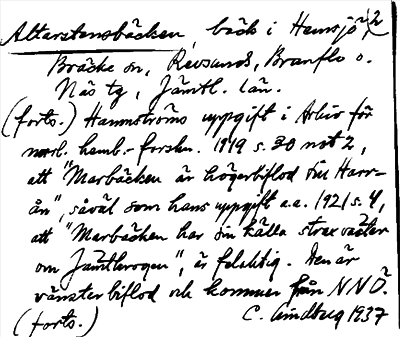 Altarstensbäcken, bäck i Hemsjö, 2
Bräcke sn, Revsunds, Brunflo o.
Näs tg, Jämtl. län.
(forts.) Hammströms uppgift i Arkiv för
norrl. hemb.-forskn. 1919 s. 30 not 2,
att "Marbäcken är högerbiflod till Harr-
ån", såväl som hans uppgift a.a. 1921 s. 4,
att "Marbäcken har sin källa strax väster
om Jämtkrogen", är felaktig. Den är
vänster biflod och kommer från NNÖ.
(forts.) C. Lindberg 1937